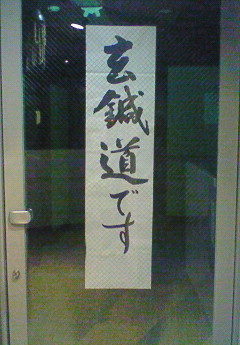 玄鍼道です